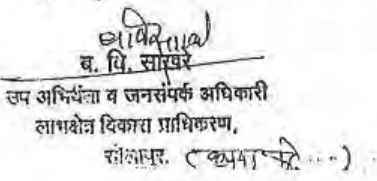 ब. वि. साखरे
उप अभियंता व जनसंपर्क अधिकारी
लाभक्षेत्र विकास प्राधिकरण,
सोलापूर.